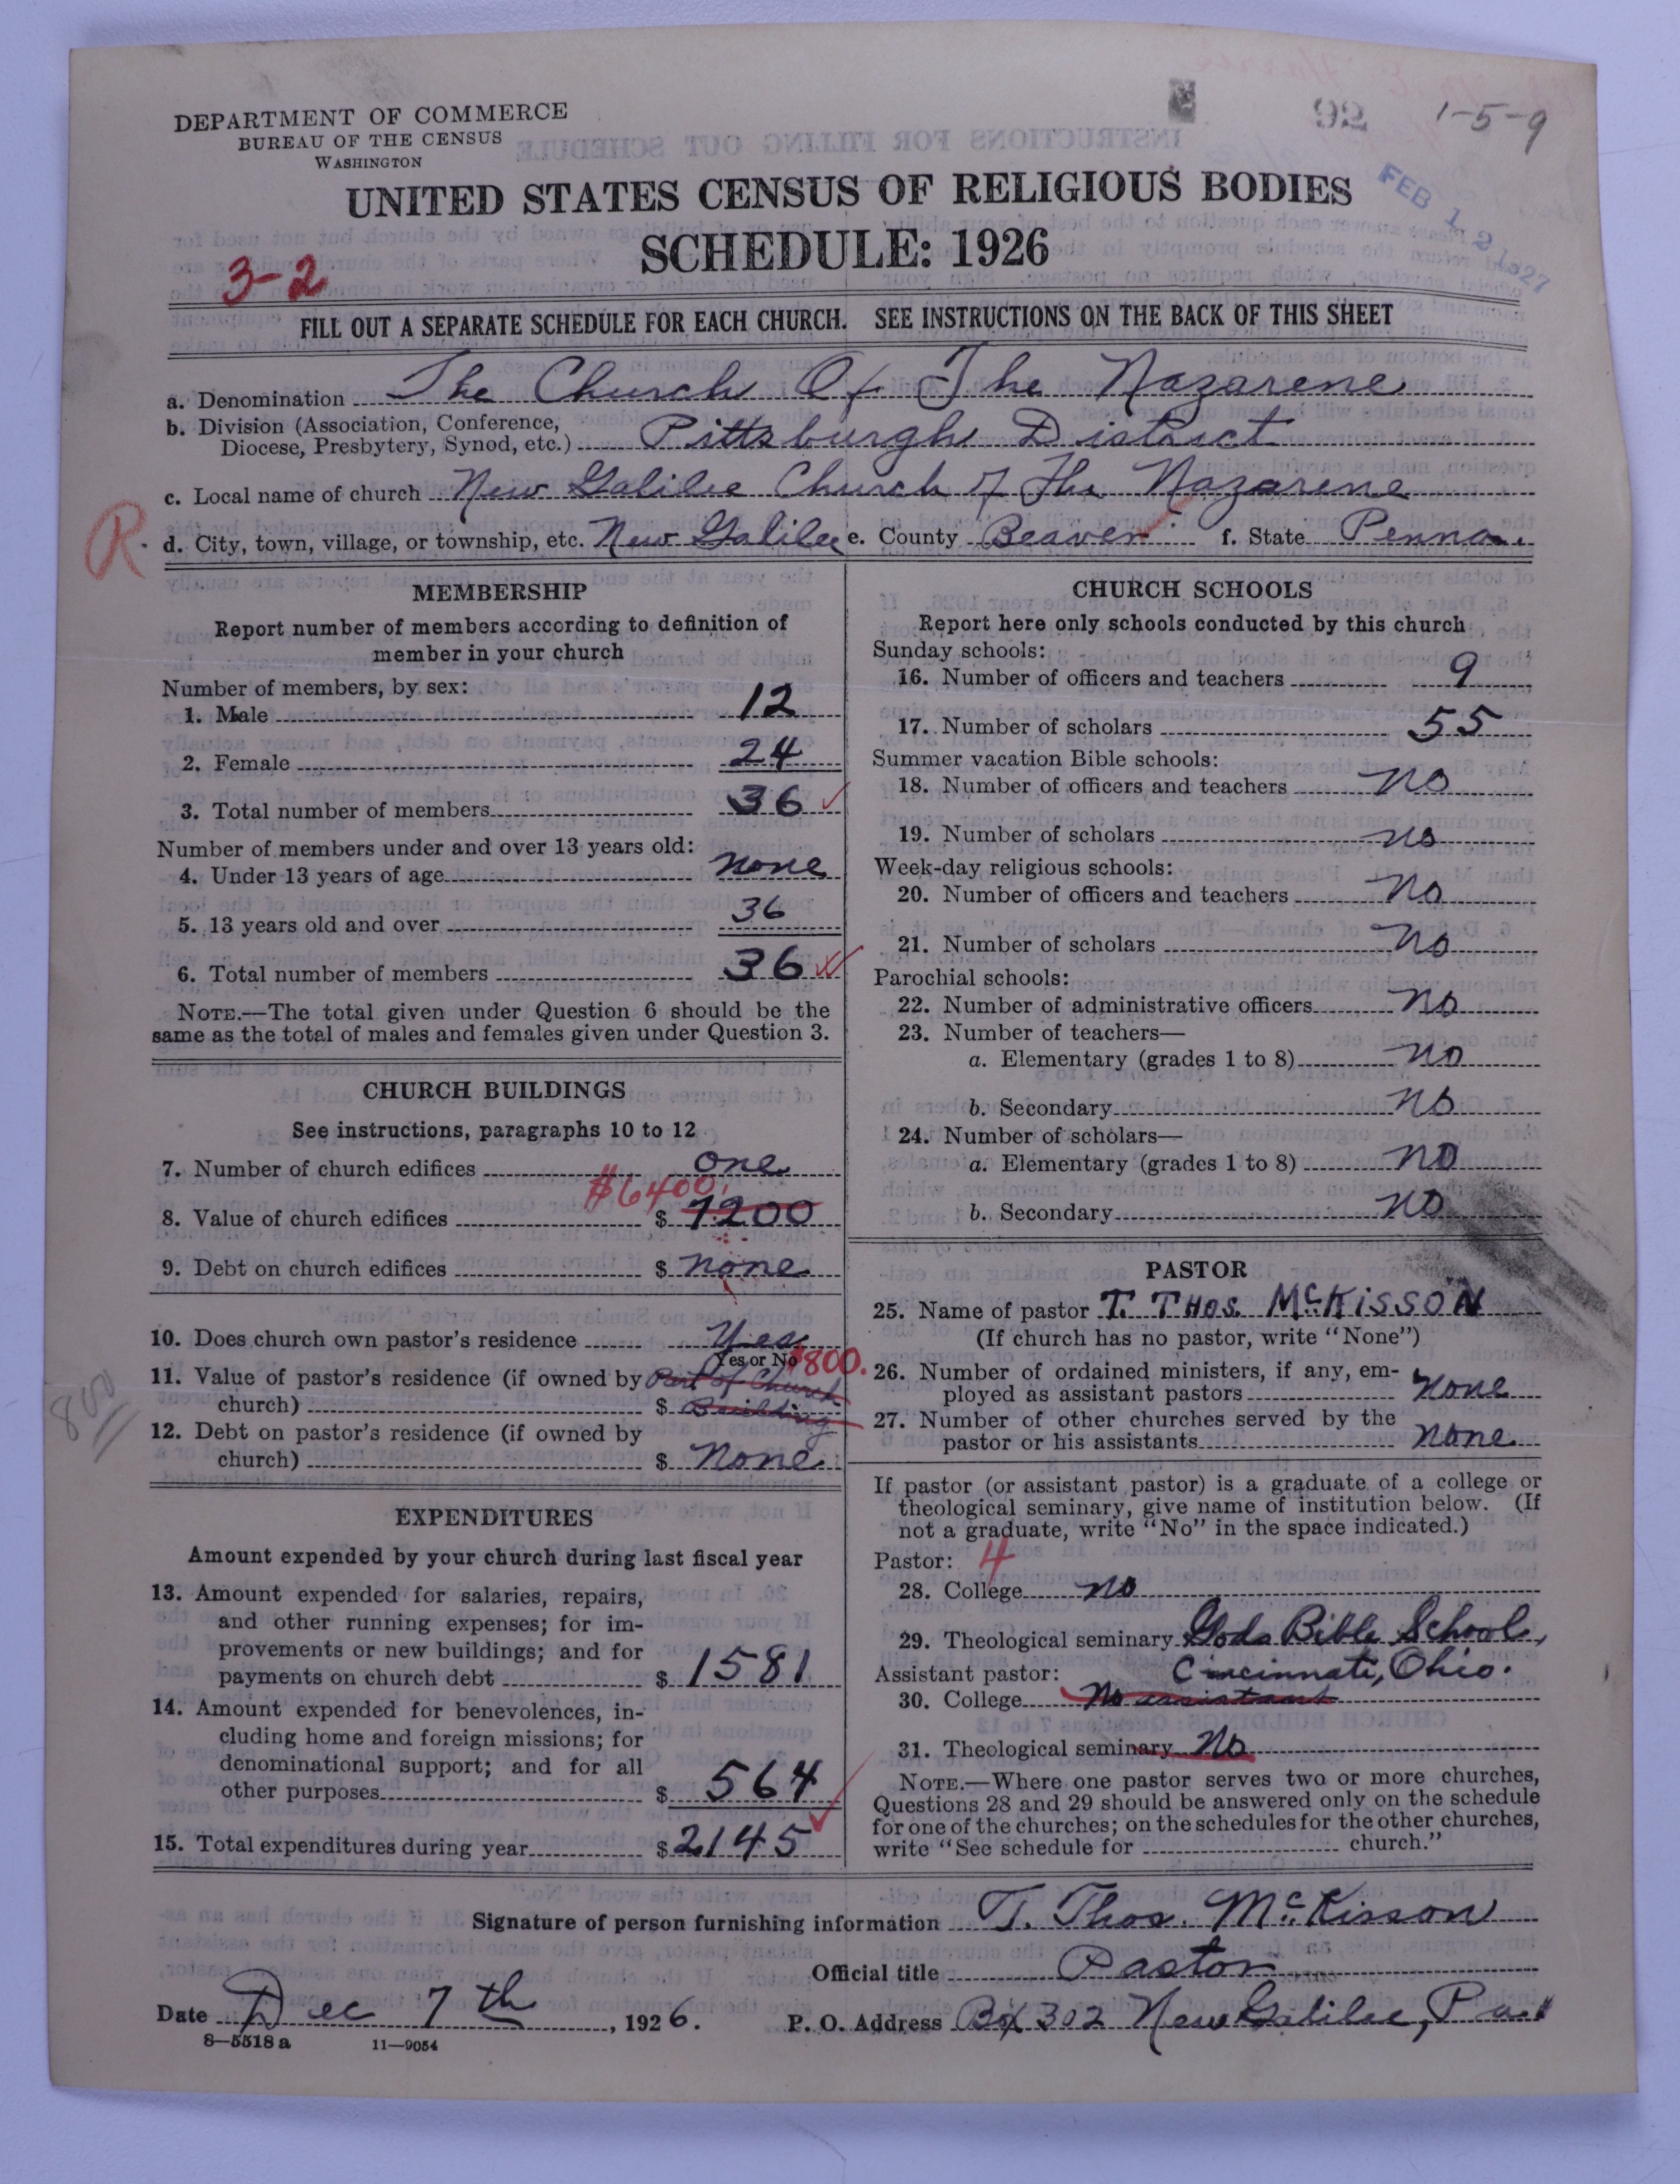 DEPARTMENT OF COMMERCE
BUREAU OF THE CENSUS
WASHINGTON
92
1-5-9
FEB 12 1927
UNITED STATES CENSUS OF RELIGIOUS BODIES
SCHEDULE: 1926
3-2
FILL OUT A SEPARATE SCHEDULE FOR EACH CHURCH. SEE INSTRUCTIONS ON THE BACK OF THIS SHEET
a. Denomination The Church Of The Nazarene
b. Division (Association, Conference,
Diocese, Presbytery, Synod, etc.) Pittsburgh District
c. Local name of church New Galilee Church of The Nazarene
R.
d. City, town, village, or township, etc. New Galilee e. County Beaver f. State Penna.
MEMBERSHIP
Report number of members according to definition of
member in your church
Number of members, by sex:
1. Male 12
2. Female 24
3. Total number of members 36
Number of members under and over 13 years old:
4. Under 13 years of age none
5. 13 years old and over 36
6. Total number of members 36
NOTE.—The total given under Question 6 should be the
same as the total of males and females given under Question 3.
CHURCH BUILDINGS
See instructions, paragraphs 10 to 12
7. Number of church edifices one
$6400.
8. Value of church edifices $ 7200
9. Debt on church edifices $ none
10. Does church own pastor's residence Yes
Yes or No
$800.
11. Value of pastor's residence (if owned by Part of Church
church) $ Building
800
12. Debt on pastor's residence (if owned by
church) $ None
EXPENDITURES
Amount expended by your church during last fiscal year
13. Amount expended for salaries, repairs,
and other running expenses; for im-
provements or new buildings; and for
payments on church debt $ 1581
14. Amount expended for benevolences, in-
cluding home and foreign missions; for
denominational support; and for all
other purposes $ 564
15. Total expenditures during year $ 2145
CHURCH SCHOOLS
Report here only schools conducted by this church
Sunday schools:
16. Number of officers and teachers 9
17. Number of scholars 55
Summer vacation Bible schools:
18. Number of officers and teachers no
19. Number of scholars no
Week-day religious schools:
20. Number of officers and teachers no
21. Number of scholars no
Parochial schools:
22. Number of administrative officers no
23. Number of teachers—
a. Elementary (grades 1 to 8) no
b. Secondary no
24. Number of scholars—
a. Elementary (grades 1 to 8) no
b. Secondary no
PASTOR
25. Name of pastor T. THOS. McKISSON
(If church has no pastor, write "None")
26. Number of ordained ministers, if any, em-
ployed as assistant pastors none
27. Number of other churches served by the
pastor or his assistants none
If pastor (or assistant pastor) is a graduate of a college or
theological seminary, give name of institution below. (If
not a graduate, write "No" in the space indicated.)
Pastor: 4
28. College no
29. Theological seminary Gods Bible School,
Cincinnati, Ohio.
Assistant pastor:
30. College No assistant
31. Theological seminary No
NOTE.—Where one pastor serves two or more churches,
Questions 28 and 29 should be answered only on the schedule
for one of the churches; on the schedules for the other churches,
write "See schedule for church."
Signature of person furnishing information T. Thos. McKisson
Official title Pastor
Date Dec 7th, 1926. P. O. Address Box 302 New Galilee, Penna
8—5518a 11—9054